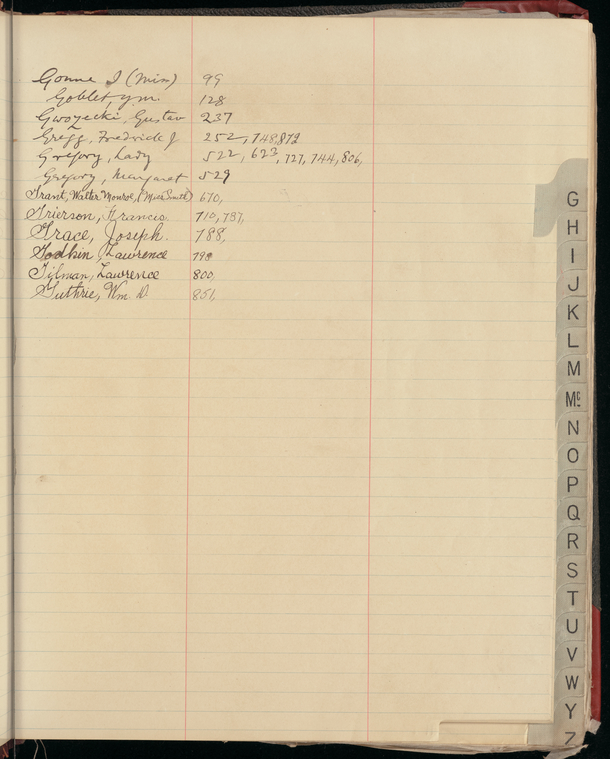 Gonne I (Miss) 99
Goblet, y.m. 128
Gwozecki, Gustav 237
Gregg, Fredrick J 252, 748, 872
Gregory, Lady 522, 623, 727, 744, 806,
Gregory, Margaret 529
Grant, Walter Monroe, (Miss Smith) 670,
Grierson, Francis 710, 737,
Grace, Joseph. 788,
Godkin, Lawrence
Gilman, Lawrence 800,
Guthrie, Wm D. 851,
G
H
I
J
K
L
M
Mc
N
O
P
Q
R
S
T
U
V
W
Y
Z